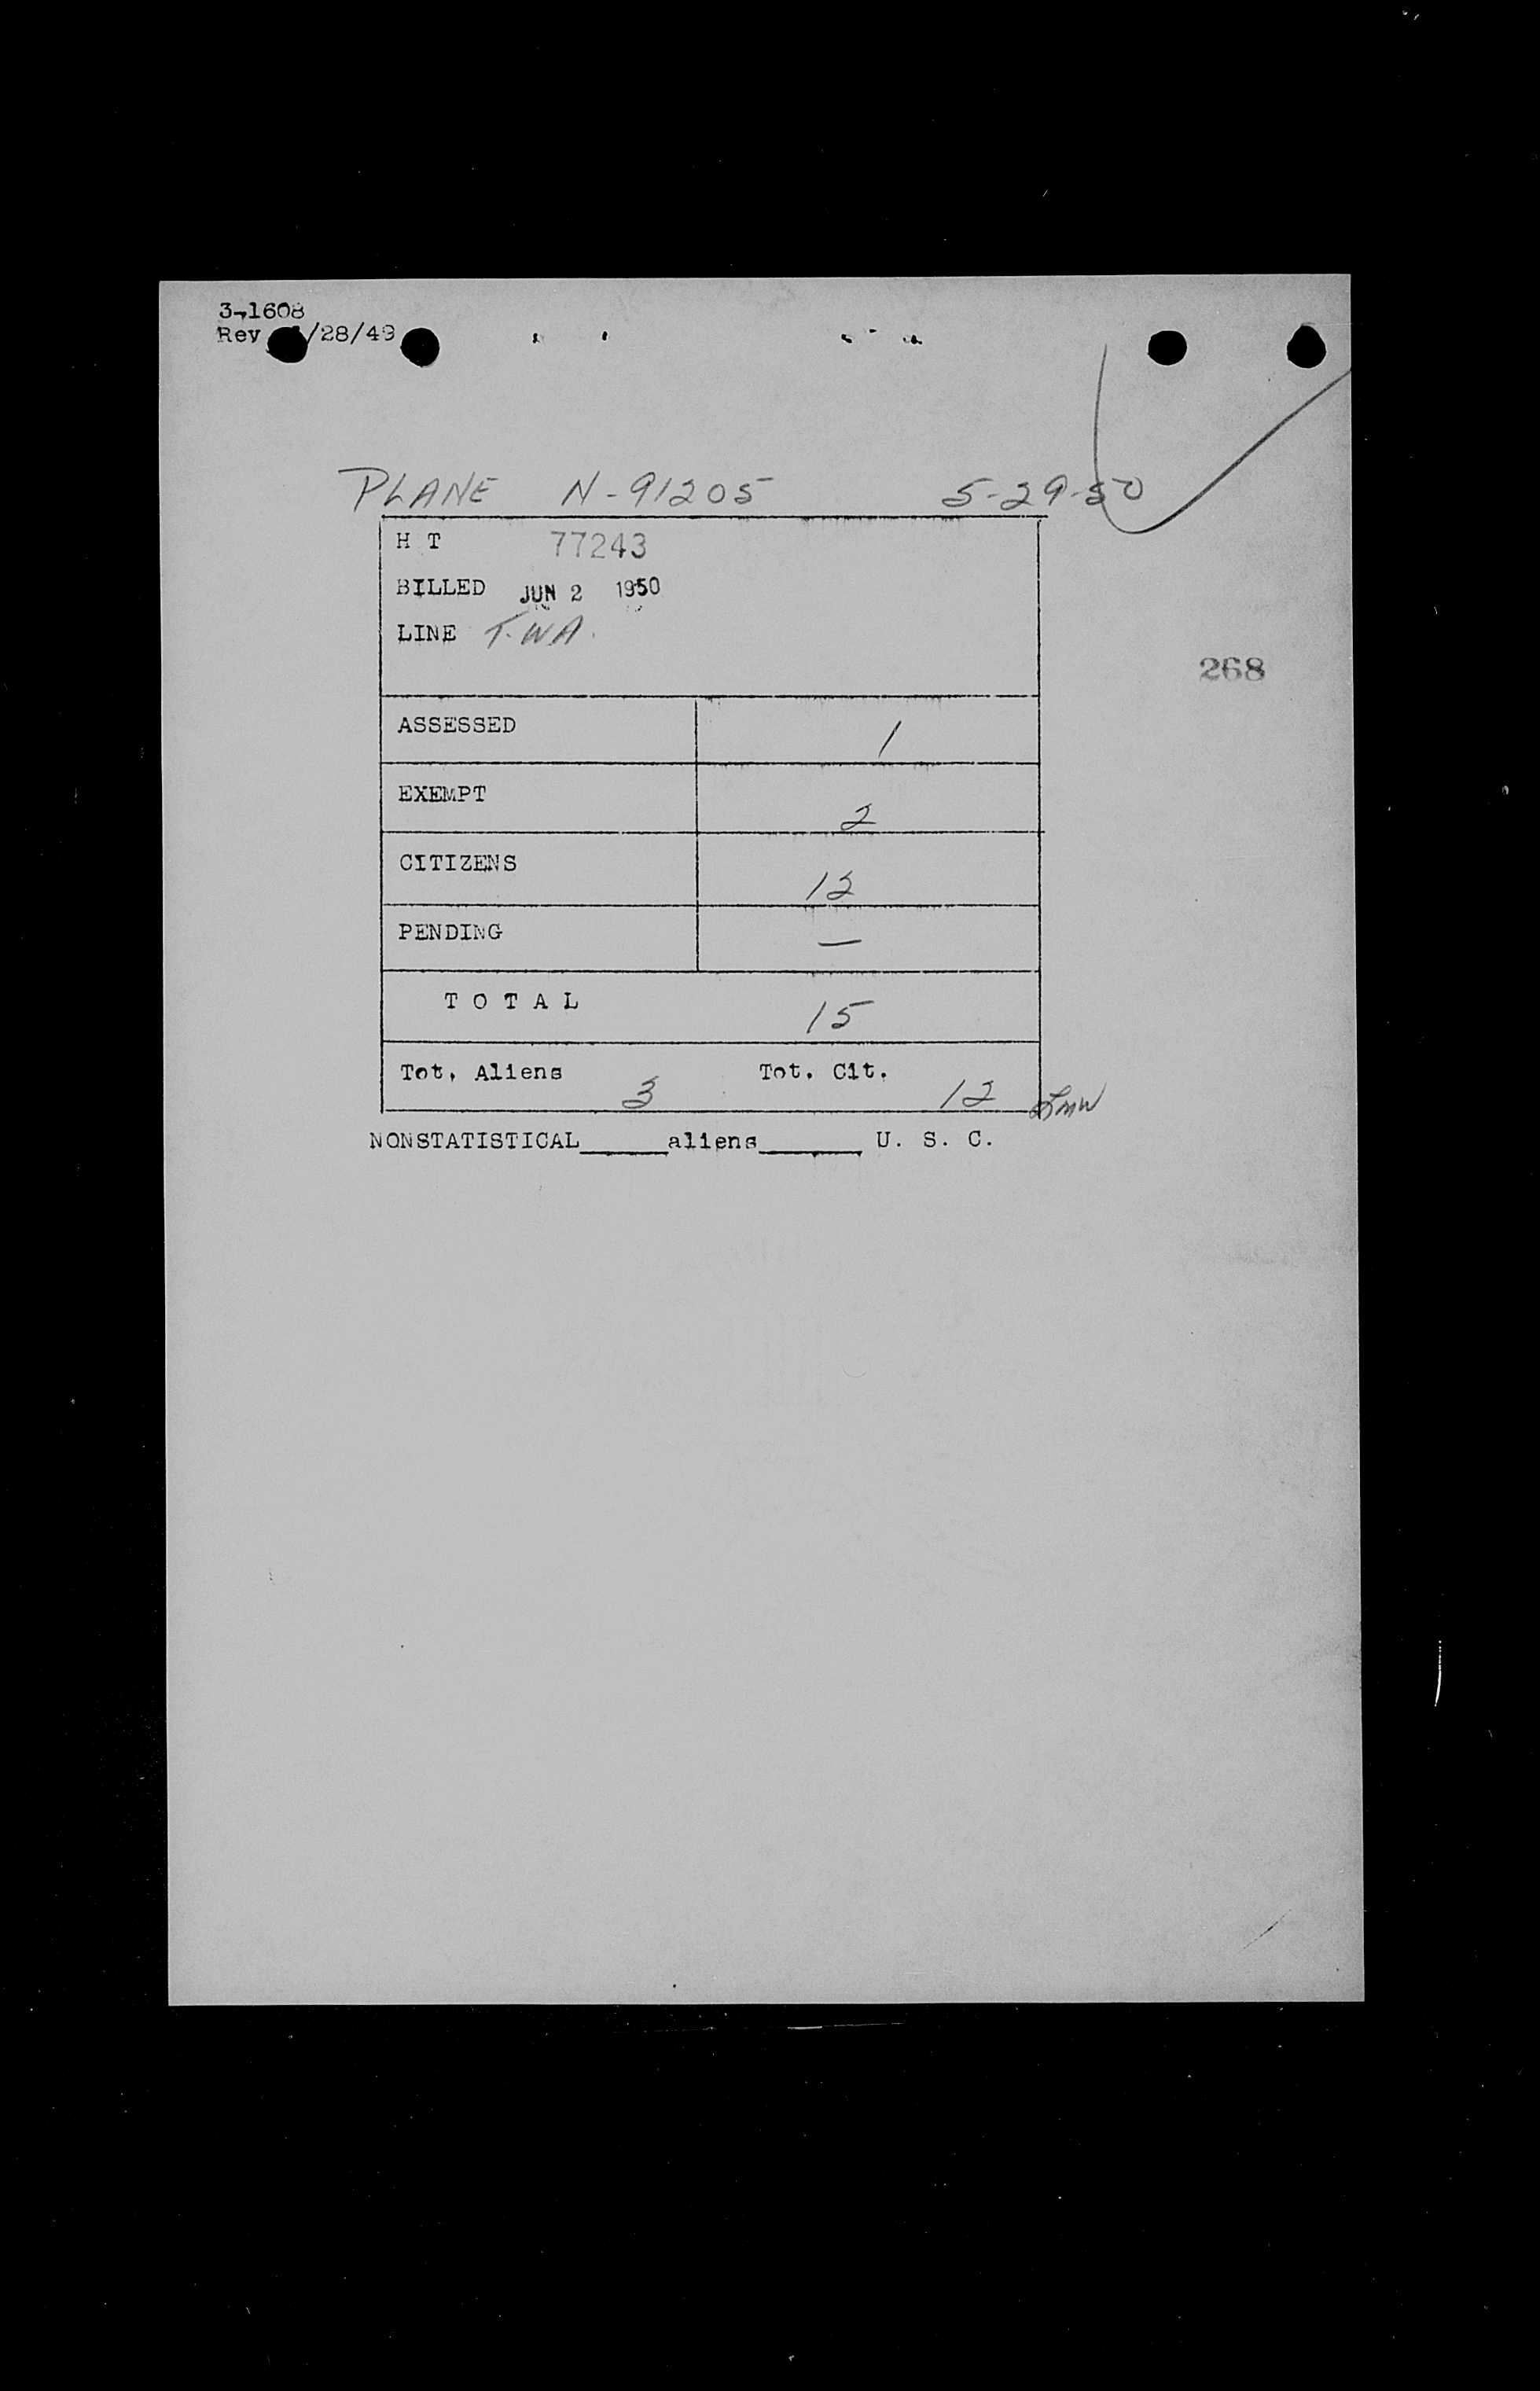 3-1608
Rev /28/49
PLANE N-91205 5-29-50
H T 77243
BILLED JUN 2 1950
LINE T.W.A.
268
ASSESSED 1
EXEMPT 2
CITIZENS 12
PENDING —
T O T A L 15
Tot. Aliens 3 Tot. Cit. 12
NONSTATISTICAL______aliens_______ U. S. C.